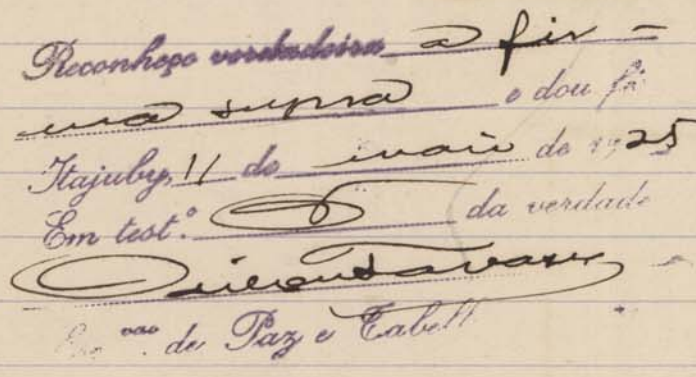 Reconheço verdadeira a fir-
ma supra e dou fé
Itajuby, 11 de maio de 1925
Em test.º da verdade
Tavares
de Paz e Tabell